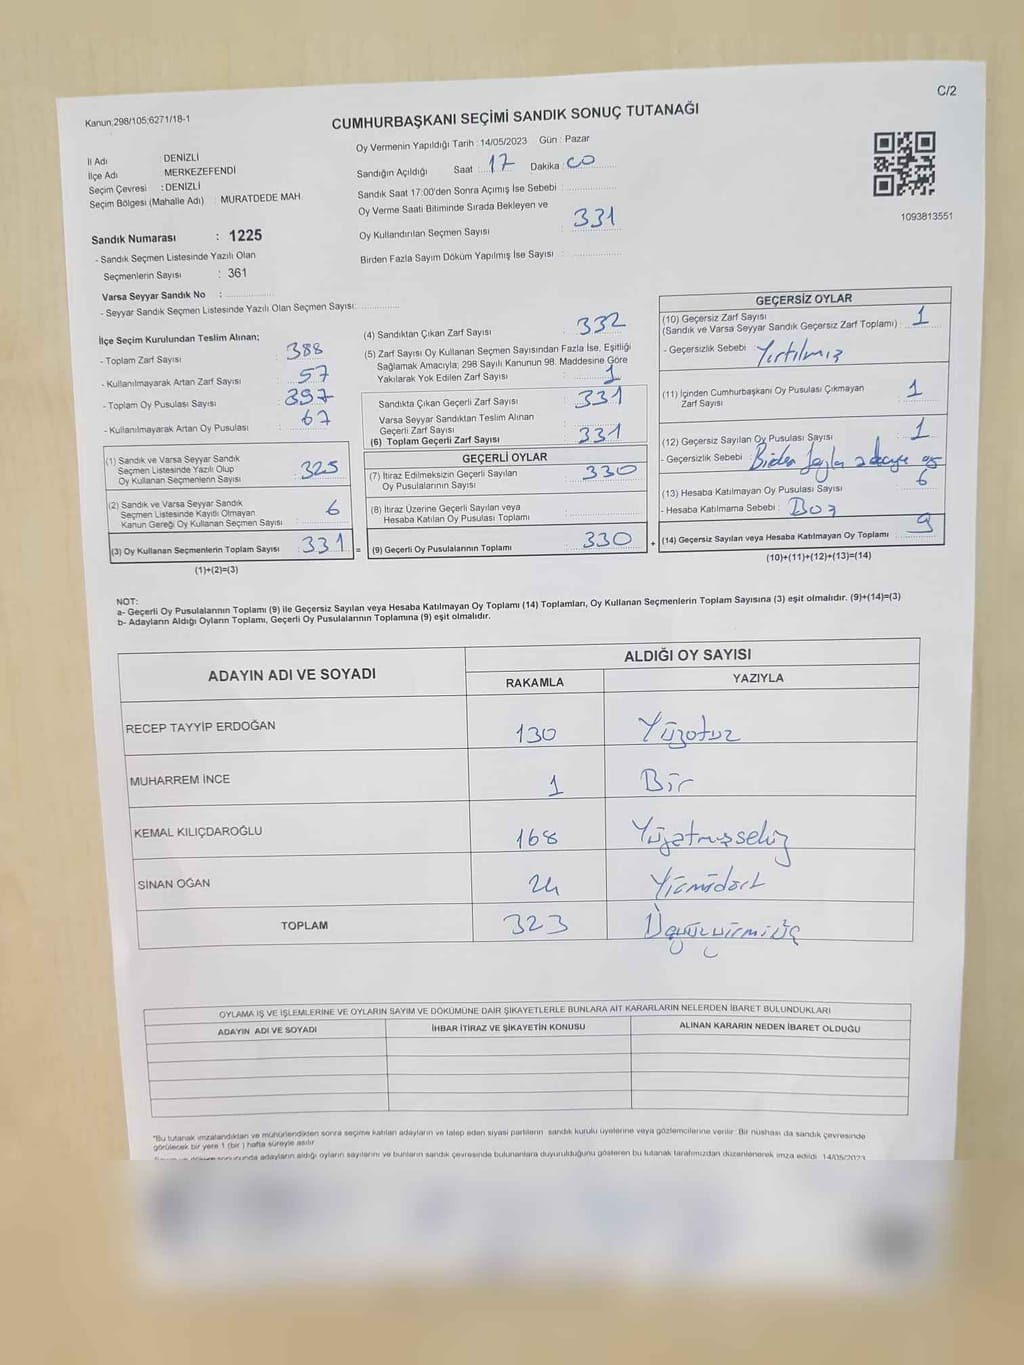 C/2
Kanun;298/105;6271/18-1
CUMHURBAŞKANI SEÇİMİ SANDIK SONUÇ TUTANAĞI
İl Adı DENİZLİ
İlçe Adı MERKEZEFENDİ
Seçim Çevresi : DENİZLİ
Seçim Bölgesi (Mahalle Adı) : MURATDEDE MAH.
Oy Vermenin Yapıldığı Tarih : 14/05/2023 Gün : Pazar
Sandığın Açıldığı Saat : 17 Dakika : 00
Sandık Saat 17:00'den Sonra Açımış İse Sebebi :
Oy Verme Saati Bitiminde Sırada Bekleyen ve
Oy Kullandırılan Seçmen Sayısı : 331
Birden Fazla Sayım Döküm Yapılmış İse Sayısı :
1093813551
Sandık Numarası : 1225
- Sandık Seçmen Listesinde Yazılı Olan
Seçmenlerin Sayısı : 361
Varsa Seyyar Sandık No :
- Seyyar Sandık Seçmen Listesinde Yazılı Olan Seçmen Sayısı:
İlçe Seçim Kurulundan Teslim Alınan;
- Toplam Zarf Sayısı : 388
- Kullanılmayarak Artan Zarf Sayısı : 57
- Toplam Oy Pusulası Sayısı : 397
- Kullanılmayarak Artan Oy Pusulası : 67
(1) Sandık ve Varsa Seyyar Sandık
Seçmen Listesinde Yazılı Olup
Oy Kullanan Seçmenlerin Sayısı : 325
(2) Sandık ve Varsa Seyyar Sandık
Seçmen Listesinde Kayıtlı Olmayan
Kanun Gereği Oy Kullanan Seçmen Sayısı : 6
(3) Oy Kullanan Seçmenlerin Toplam Sayısı : 331 =
(1)+(2)=(3)
(4) Sandıktan Çıkan Zarf Sayısı : 332
(5) Zarf Sayısı Oy Kullanan Seçmen Sayısından Fazla İse, Eşitliği
Sağlamak Amacıyla; 298 Sayılı Kanunun 98. Maddesine Göre
Yakılarak Yok Edilen Zarf Sayısı : 1
Sandıkta Çıkan Geçerli Zarf Sayısı : 331
Varsa Seyyar Sandıktan Teslim Alınan
Geçerli Zarf Sayısı :
(6) Toplam Geçerli Zarf Sayısı : 331
GEÇERLİ OYLAR
(7) İtiraz Edilmeksizin Geçerli Sayılan
Oy Pusulalarının Sayısı : 330
(8) İtiraz Üzerine Geçerli Sayılan veya
Hesaba Katılan Oy Pusulası Toplamı :
(9) Geçerli Oy Pusulalarının Toplamı : 330 +
GEÇERSİZ OYLAR
(10) Geçersiz Zarf Sayısı
(Sandık ve Varsa Seyyar Sandık Geçersiz Zarf Toplamı) : 1
- Geçersizlik Sebebi : Yırtılmış
(11) İçinden Cumhurbaşkanı Oy Pusulası Çıkmayan
Zarf Sayısı : 1
(12) Geçersiz Sayılan Oy Pusulası Sayısı : 1
- Geçersizlik Sebebi : Birden fazla adaya oy
(13) Hesaba Katılmayan Oy Pusulası Sayısı : 6
- Hesaba Katılmama Sebebi : Boş
(14) Geçersiz Sayılan veya Hesaba Katılmayan Oy Toplamı : 9
(10)+(11)+(12)+(13)=(14)
NOT:
a- Geçerli Oy Pusulalarının Toplamı (9) ile Geçersiz Sayılan veya Hesaba Katılmayan Oy Toplamı (14) Toplamları, Oy Kullanan Seçmenlerin Toplam Sayısına (3) eşit olmalıdır. (9)+(14)=(3)
b- Adayların Aldığı Oyların Toplamı, Geçerli Oy Pusulalarının Toplamına (9) eşit olmalıdır.
ADAYIN ADI VE SOYADI ALDIĞI OY SAYISI
RAKAMLA YAZIYLA
RECEP TAYYİP ERDOĞAN 130 Yüzotuz
MUHARREM İNCE 1 Bir
KEMAL KILIÇDAROĞLU 168 Yüzatmışsekiz
SİNAN OĞAN 24 Yirmidört
TOPLAM 323 Üçyüzyirmiüç
OYLAMA İŞ VE İŞLEMLERİNE VE OYLARIN SAYIM VE DÖKÜMÜNE DAİR ŞİKAYETLERLE BUNLARA AİT KARARLARIN NELERDEN İBARET BULUNDUKLARI
ADAYIN ADI VE SOYADI İHBAR İTİRAZ VE ŞİKAYETİN KONUSU ALINAN KARARIN NEDEN İBARET OLDUĞU
"Bu tutanak imzalandıktan ve mühürlendikten sonra seçime katılan adayların ve talep eden siyasi partilerin sandık kurulu üyelerine veya gözlemcilerine verilir. Bir nüshası da sandık çevresinde
görülecek bir yere 1 (bir) hafta süreyle asılır.
sonucunda adayların aldığı oyların sayılarını ve bunların sandık çevresinde bulunanlara duyurulduğunu gösteren bu tutanak tarafımızdan düzenlenerek imza edildi. 14/05/2023